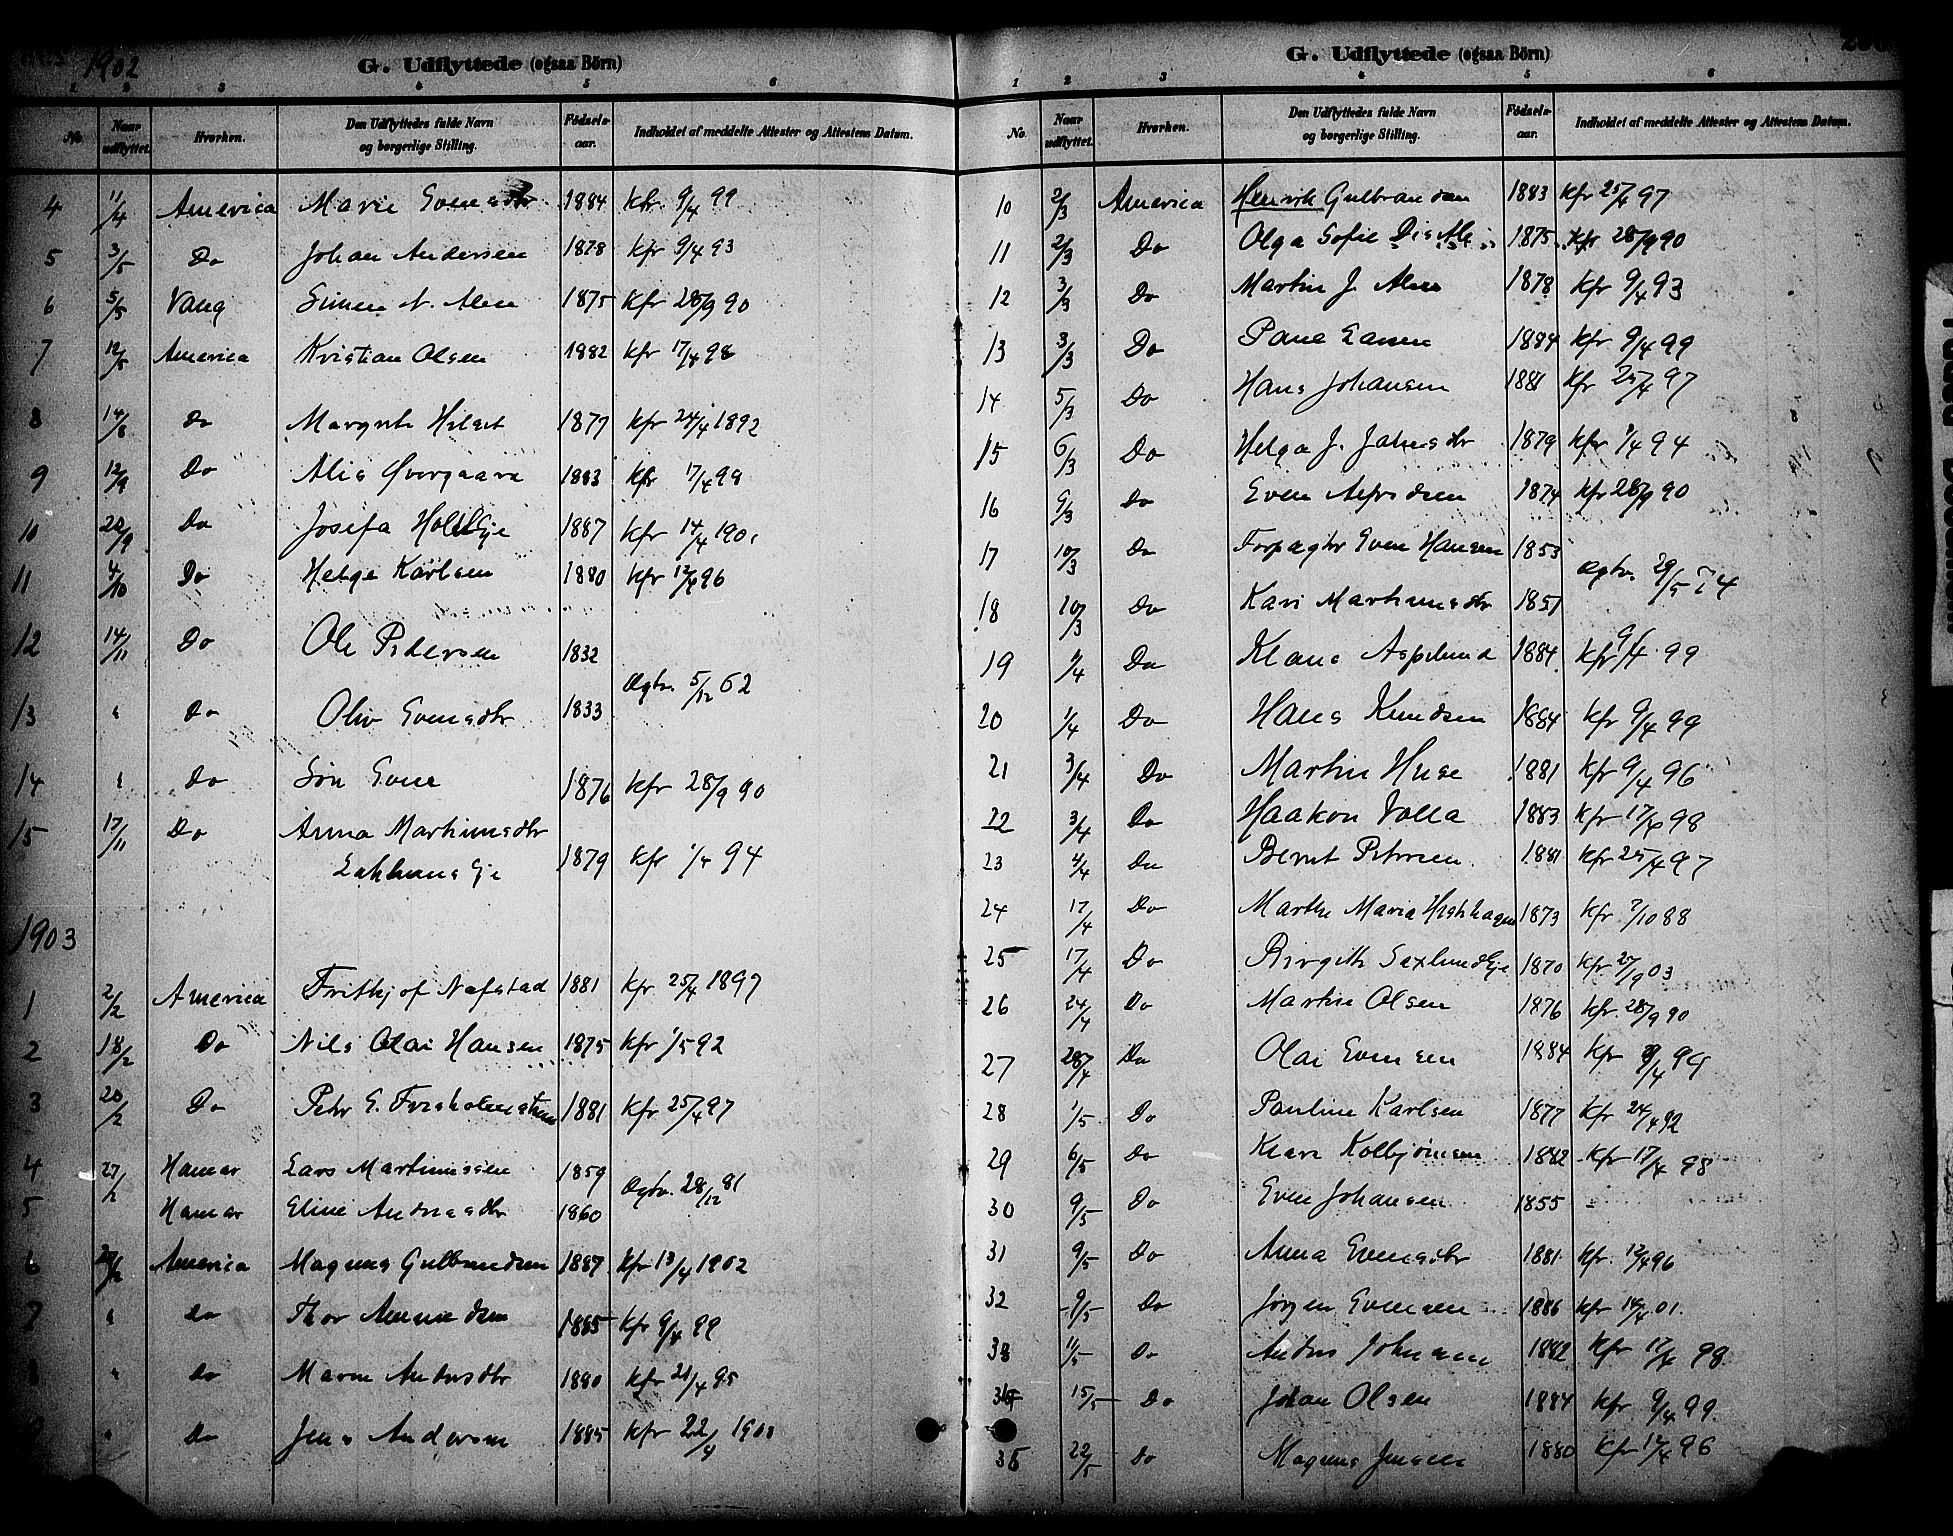 1902
G. Udflyttede (ogsaa Börn)
1 2 3 4 5 6
No. Naar udflyttet. Hvorhen. Den Udflyttedes fulde Navn og borgerlige Stilling. Fødsels-aar. Indholdet af meddelte Attester og Attestens Datum.
4 11/4 America Marie Evensdtr 1884 Kfr. 9/4 99
5 3/5 Do Johan Andersen 1878 Kfr 9/4 93
6 5/5 Vang Simen N. Alm 1875 Kfr 28/9 90
7 12/5 America Kristian Olsen 1882 Kfr 17/4 98
8 14/8 Do Margrethe 1877 Kfr 24/4 1892
9 12/9 Do 1883 Kfr 17/4 98
10 20/9 Do Josefa 1887 Kfr 14/4 1901
11 4/10 Do Helge Karlsen 1880 Kfr 12/4 96
12 14/11 Do Ole Pedersen 1832
Ægtv. 5/12 62
13 " Do Oliv Evensdtr 1833
14 " Do Søn Even 1876 Kfr 28/9 90
15 17/11 Do Anna Martinusdtr
1879 Kfr 1/5 94
1903
1 2/2 America Frithjof Nafstad 1881 Kfr 25/4 1897
2 18/2 Do Nils Olai Hansen 1875 Kfr 1/5 92
3 20/2 Do Petr E. 1881 Kfr 25/4 97
4 27/2 Hamar Lars Martinussen 1859
Ægtv. 28/12 81
5 Hamar Eline Andreasdtr 1860
6 27/2 America Magnus Gulbrandsen 1887 Kfr 13/4 1902
7 " Do Thor Amundsen 1885 Kfr 9/4 99
8 " Do Maren Andersdtr 1880 Kfr 21/4 95
9 " Do Jens Andersen 1885 Kfr 22/4 1900
G. Udflyttede (ogsaa Börn)
1 2 3 4 5 6
No. Naar udflyttet. Hvorhen. Den Udflyttedes fulde Navn og borgerlige Stilling. Fødsels-aar. Indholdet af meddelte Attester og Attestens Datum.
10 2/3 America Henrik Gulbrandsen 1883 Kfr 25/4 97
11 2/3 Do Olga Sofie 1875 Kfr 28/9 90
12 3/3 Do Martin J. Alm 1878 Kfr 9/4 93
13 3/3 Do 1884 Kfr 9/4 99
14 5/3 Do Hans Johansen 1881 Kfr 25/4 97
15 6/3 Do Helga J. 1879 Kfr 1/4 94
16 9/3 Do Even 1874 Kfr 28/9 90
17 10/3 Do Forpagter Even Hansen 1853
Ægtv. 29/5 74
18 10/3 Do Kari Martinusdtr 1851
19 1/4 Do Klaus Asplund 1884 Kfr 9/4 99
20 1/4 Do Hans Knudsen 1884 Kfr 9/4 99
21 3/4 Do Martin Huse 1881 Kfr 9/4 96
22 3/4 Do Haakon Volla 1883 Kfr 17/4 98
23 4/4 Do Bernt Petersen 1881 Kfr 25/4 97
24 17/4 Do Marthe Maria 1873 Kfr. 7/10 88
25 17/4 Do Birgithe 1870 Kfr 27/9 03
26 24/4 Do Martin Olsen 1876 Kfr. 28/9 90
27 28/4 Do Olai Evensen 1884 Kfr 9/4 99
28 1/5 Do Pauline Karlsen 1877 Kfr 24/4 92
29 6/5 Do Kolbjørnsen 1882 Kfr 17/4 98
30 9/5 Do Even Johansen 1855 -
31 9/5 Do Anna Evensdtr 1881 Kfr. 12/4 96
32 9/5 Do Jørgen Evensen 1886 Kfr 14/4 01.
33 11/5 Do Anders Johansen 1882 Kfr 17/4 98.
34 15/5 Do Johan Olsen 1884 Kfr 9/4 99.
35 22/5 Do Magnus Jensen 1880 Kfr 12/4 96